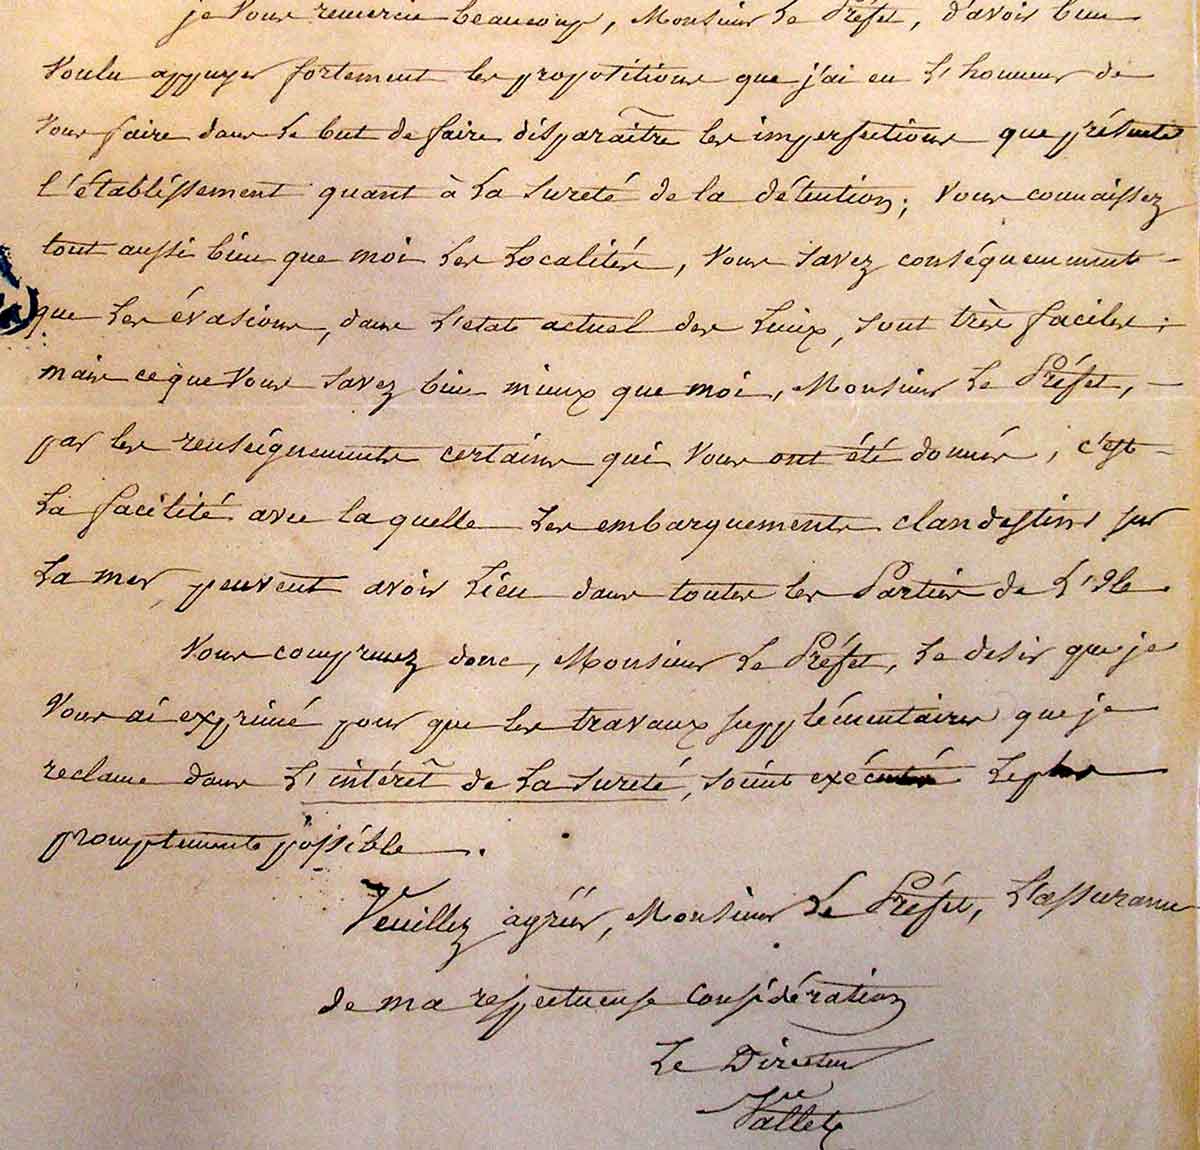 je Vous remercie beaucoup, Monsieur Le Préfet, d'avoir bien
Voulu appuyer fortement les propositions que j'ai eu L'honneur de
Vous faire dans Le but de faire disparaître les imperfections que présente
l'établissement quant à La Sureté de la détention; Vous connaissez
tout aussi bien que moi Les Localités, Vous Savez conséquemment
que Les évasions, dans L'état actuel des Lieux, Sont très faciles;
mais ce que Vous Savez bien mieux que moi, Monsieur Le Préfet,
par les renseignements certains qui Vous ont été donnés, c'est
La facilité avec la quelle Les embarquements clandestins sur
La mer peuvent avoir Lieu dans toutes les Parties de L'Ile
Vous comprenez donc, Monsieur Le Préfet, Le desir que je
Vous ai exprimé pour que les travaux supplémentaires que je
reclame dans L'intérêt de La Sureté, soient exécutés Le plus
promptement possible.
Veuillez agréer, Monsieur Le Préfet, L'assurance
de ma respectueuse Considération
Le Directeur